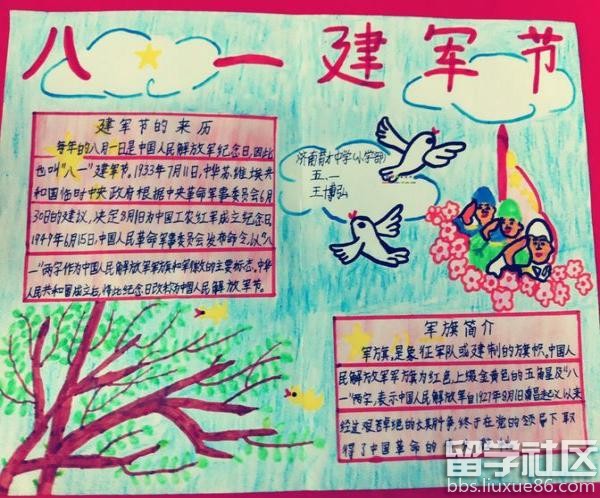 八一建军节
建军节的来历
每年的八月一日是中国人民解放军纪念日,因此
也叫"八一"建军节。1933年7月11日,中华苏维埃共
和国临时中央政府根据中央革命军事委员会6月
30日的建议,决定8月1日为中国工农红军成立纪念日
1949年6月15日,中国人民革命军事委员会发布命令,以"八
一"两字作为中国人民解放军军旗和军徽的主要标志。中华
人民共和国成立后,将此纪念日改称为中国人民解放军节。
济南育才中学(小学部)
五、一
王博弘
军旗简介
军旗,是象征军队或建制的旗帜。中国人
民解放军军旗为红色,上缀金黄色的五角星及"八
一"两字,表示中国人民解放军自1927年8月1日南昌起义以来
经过艰苦卓绝的火某斗争,终于在党的领导下取
得了中国革命的
留学社区
bbs.liuxue86.com